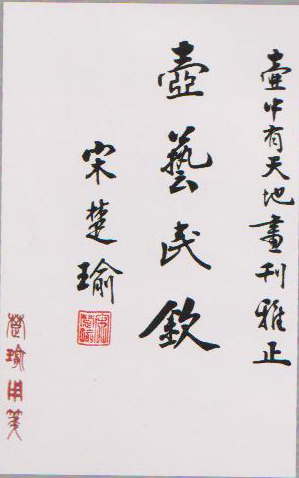 壺中有天地畫刊雅正
壺藝民欽
宋楚瑜
楚瑜用箋